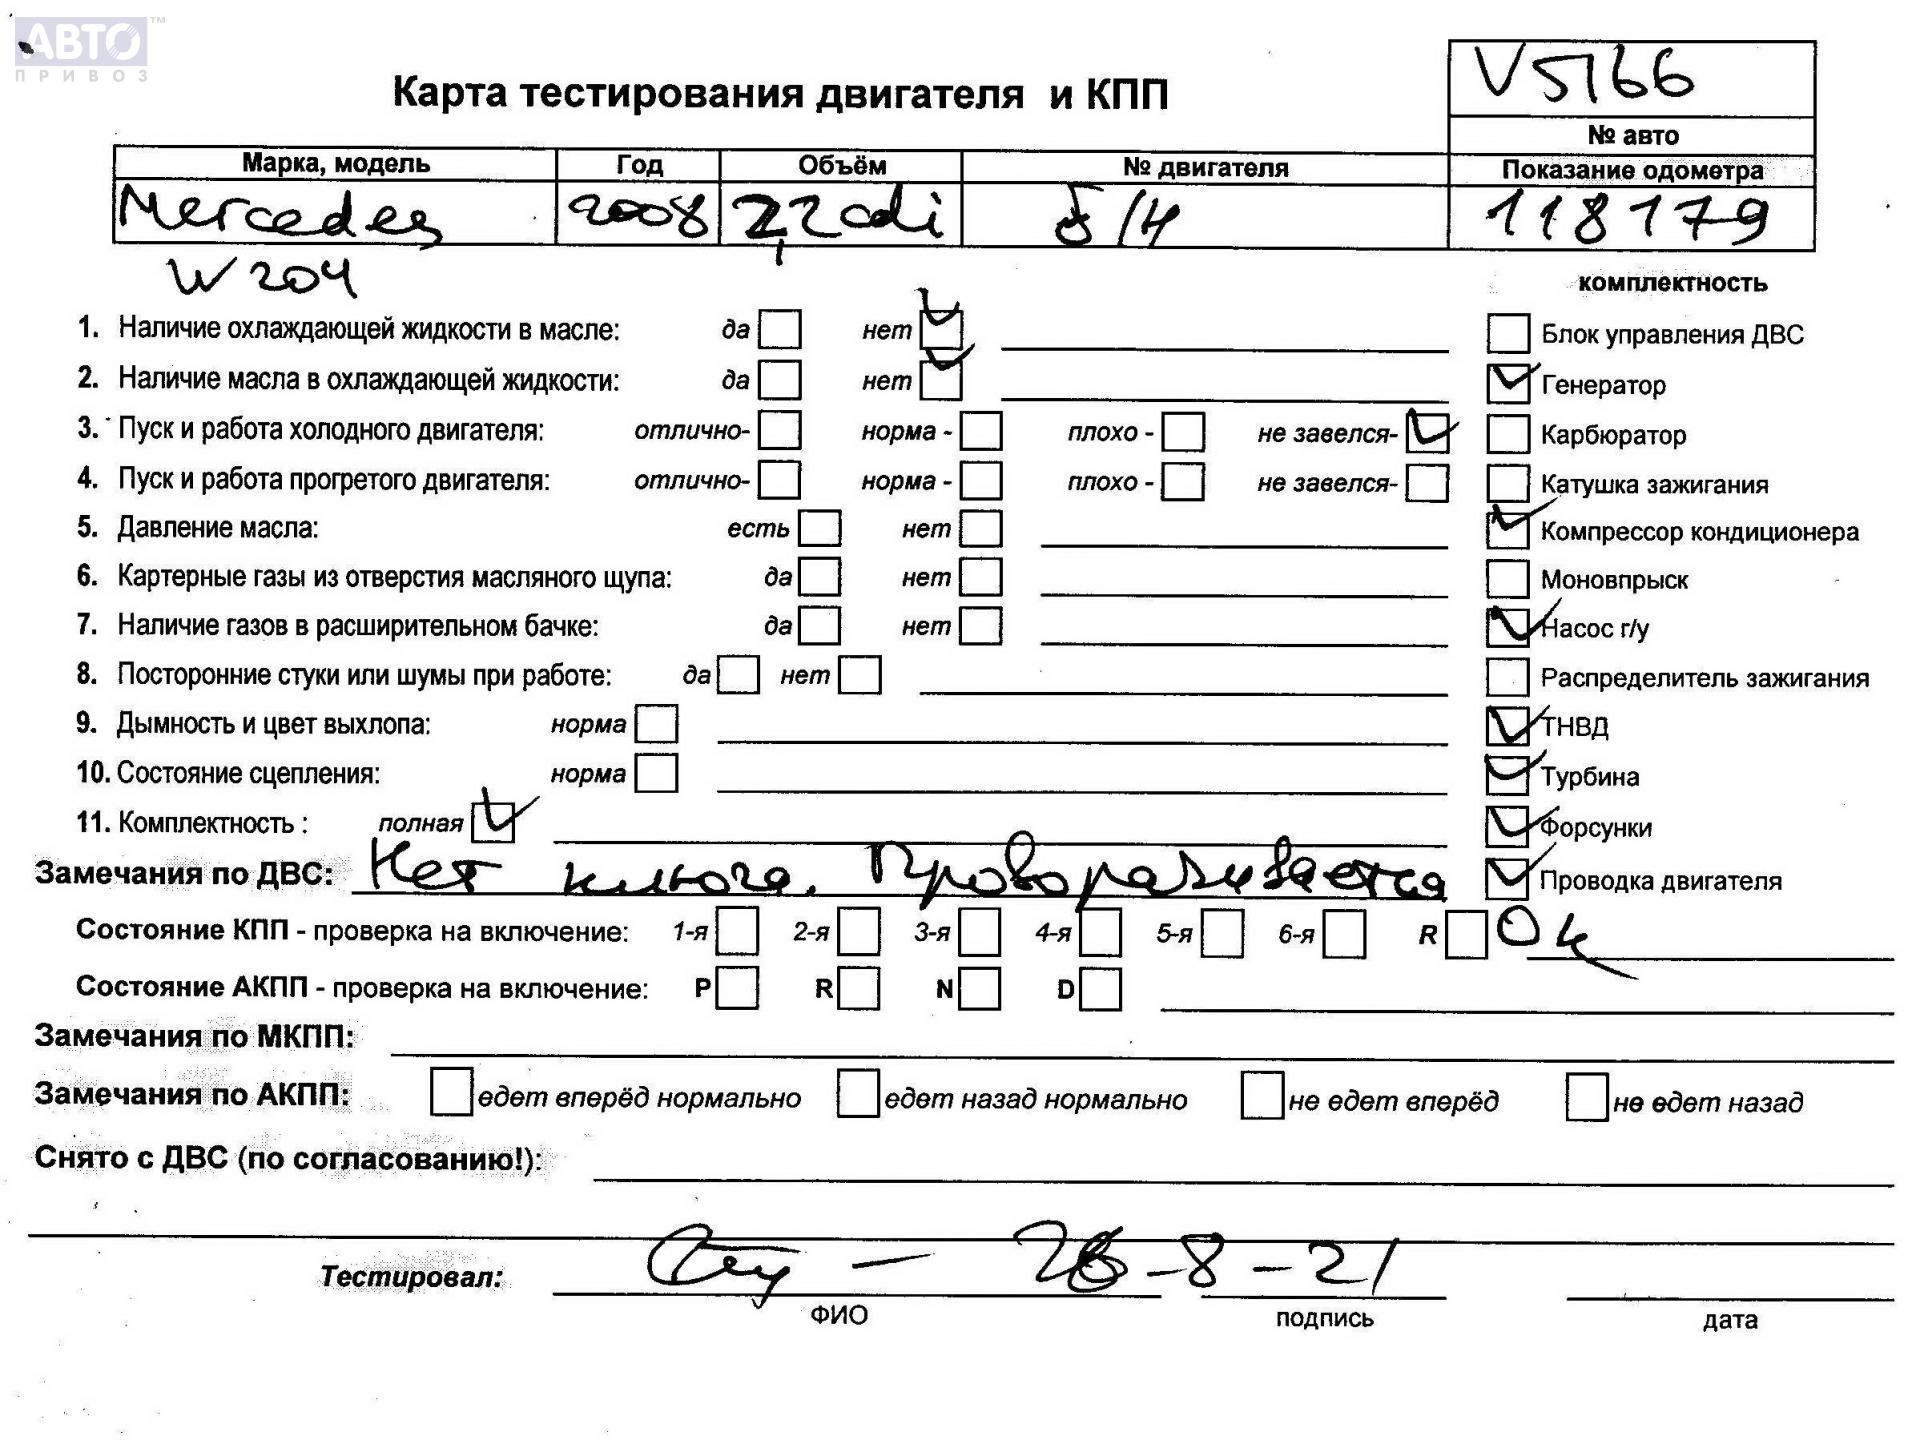 АВТО ™
ПРИВОЗ
V5166
Карта тестирования двигателя и КПП
№ авто
Марка, модель Год Объём № двигателя Показание одометра
Mercedes 2008 2,2cdi б/н 118179
W204
комплектность
1. Наличие охлаждающей жидкости в масле: да нет Блок управления ДВС
2. Наличие масла в охлаждающей жидкости: да нет Генератор
3. Пуск и работа холодного двигателя: отлично- норма - плохо - не завелся- Карбюратор
4. Пуск и работа прогретого двигателя: отлично- норма - плохо - не завелся- Катушка зажигания
5. Давление масла: есть нет Компрессор кондиционера
6. Картерные газы из отверстия масляного щупа: да нет Моновпрыск
7. Наличие газов в расширительном бачке: да нет Насос г/у
8. Посторонние стуки или шумы при работе: да нет Распределитель зажигания
9. Дымность и цвет выхлопа: норма ТНВД
10. Состояние сцепления: норма Турбина
11. Комплектность : полная Форсунки
Замечания по ДВС: Нет ключа. Проворачивается Проводка двигателя
Состояние КПП - проверка на включение: 1-я 2-я 3-я 4-я 5-я 6-я R Ок
Состояние АКПП - проверка на включение: P R N D
Замечания по МКПП:
Замечания по АКПП: едет вперёд нормально едет назад нормально не едет вперёд не едет назад
Снято с ДВС (по согласованию!):
Тестировал: - 8 - 21
ФИО подпись дата